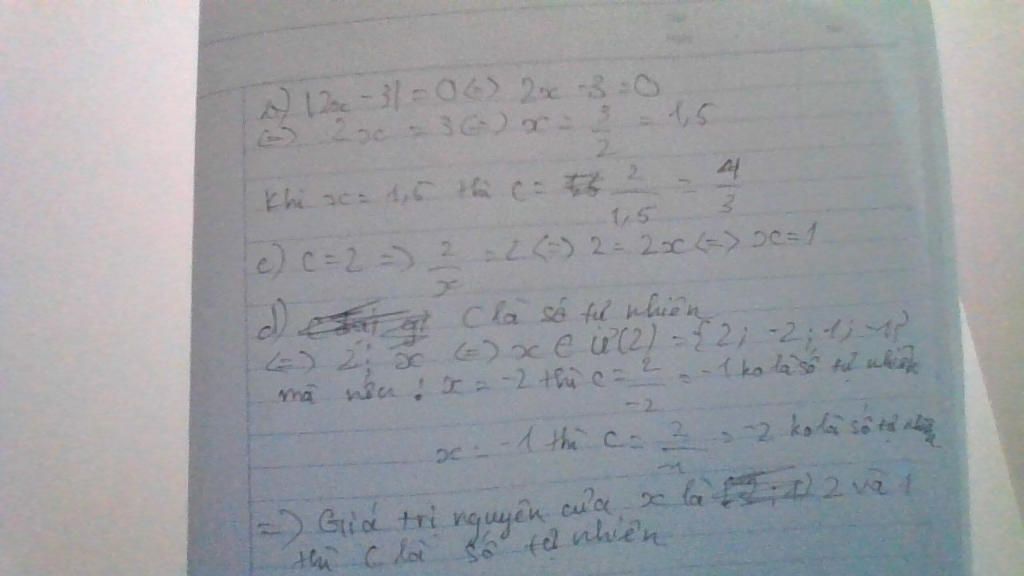 b) |2x - 3| = 0 (=) 2x - 3 = 0
(=) 2x = 3 (=) x = 3/2 = 1,5
Khi x = 1,5 thì C = 2/1,5 = 4/3
c) C = 2 => 2/x = 2 (=) 2 = 2x (=) x = 1
d) C là số tự nhiên
(=) 2 ⋮ x (=) x ∈ Ư(2) = {2; -2; 1; -1}
mà nếu : x = -2 thì C = 2/-2 = -1 ko là số tự nhiên
x = -1 thì C = 2/-1 = -2 ko là số tự nhiên
=) Giá trị nguyên của x là 2 và 1
thì C là số tự nhiên